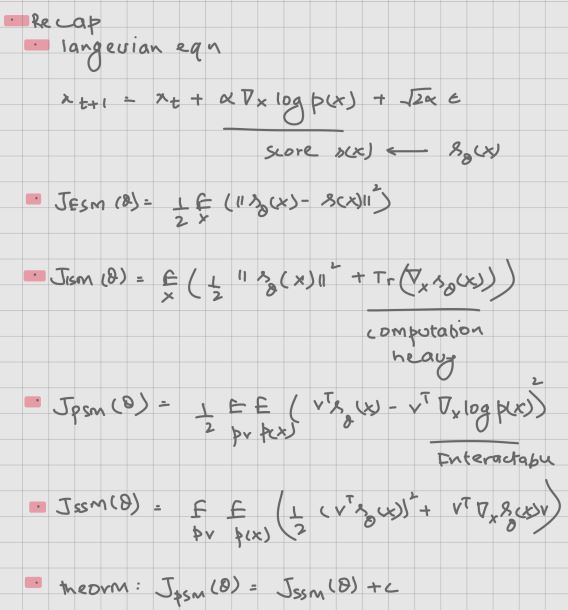 Recap
langevian eqn
x_{t+1} = x_t + α ∇_x log p(x) + √2α ϵ
score s(x) ← s_θ(x)
J_{ESM}(θ) = 1/2 E_x (‖s_θ(x) - s(x)‖²)
J_{ISM}(θ) = E_x (1/2 ‖s_θ(x)‖² + Tr(∇_x s_θ(x)))
computation
heavy
J_{PSM}(θ) = 1/2 E_{pv} E_{p(x)} (v^T s_θ(x) - v^T ∇_x log p(x))²
Enteractabu
J_{SSM}(θ) = E_{pv} E_{p(x)} (1/2 (v^T s_θ(x))² + v^T ∇_x s_θ(x) v)
theorm: J_{PSM}(θ) = J_{SSM}(θ) + c